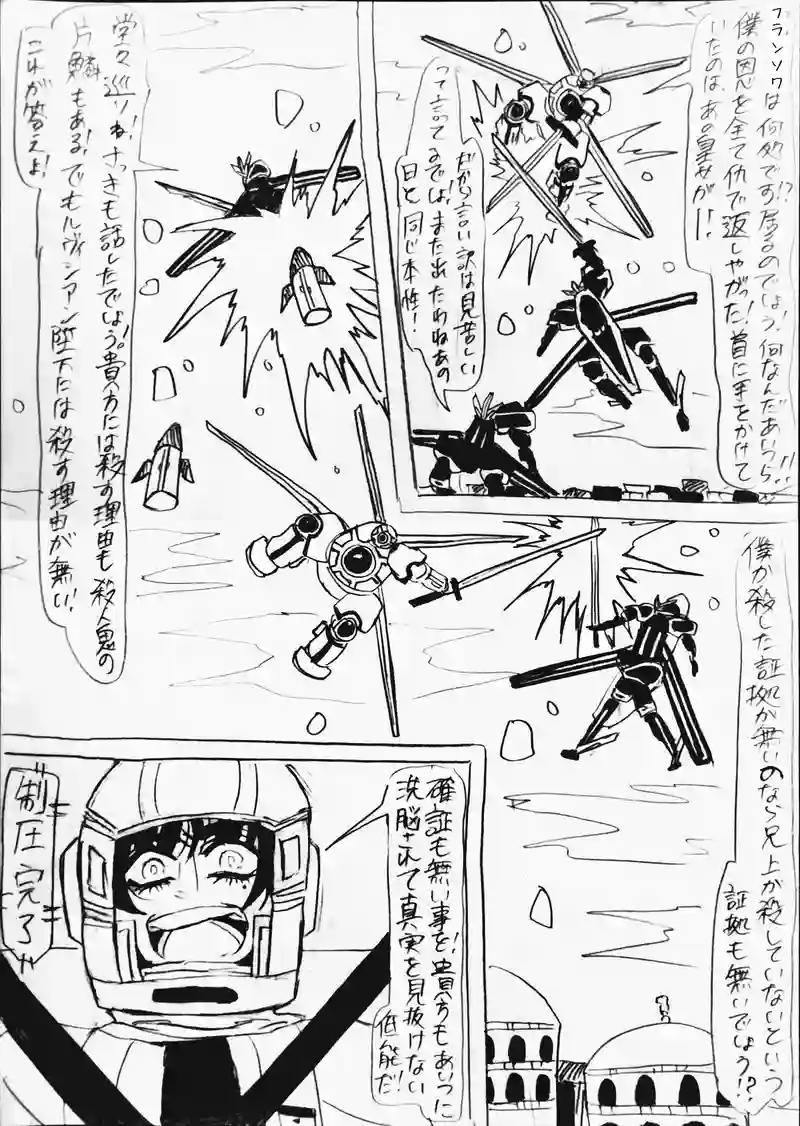 フランソワは何処です!?居るのでしょう!何なんだあいつら!!
僕の恩を全て仇で返しやがった!首に手をかけて
いたのは、あの皇女がー!
だから言い訳は見苦しい
って言ってるでは、また出たわねあの
日と同じ本性!
堂々巡りね!さっきも話したでしょう。貴方には殺す理由も殺人鬼の
片鱗もある!でもルヴィンアン陛下には殺す理由が無い!
これが答えよ!
僕が殺した証拠が無いのなら兄上が殺していないという
証拠も無いでしょう!?
確証も無い事を!貴方もあいつに
洗脳されて真実を見抜けない
低能だ!
制圧完了